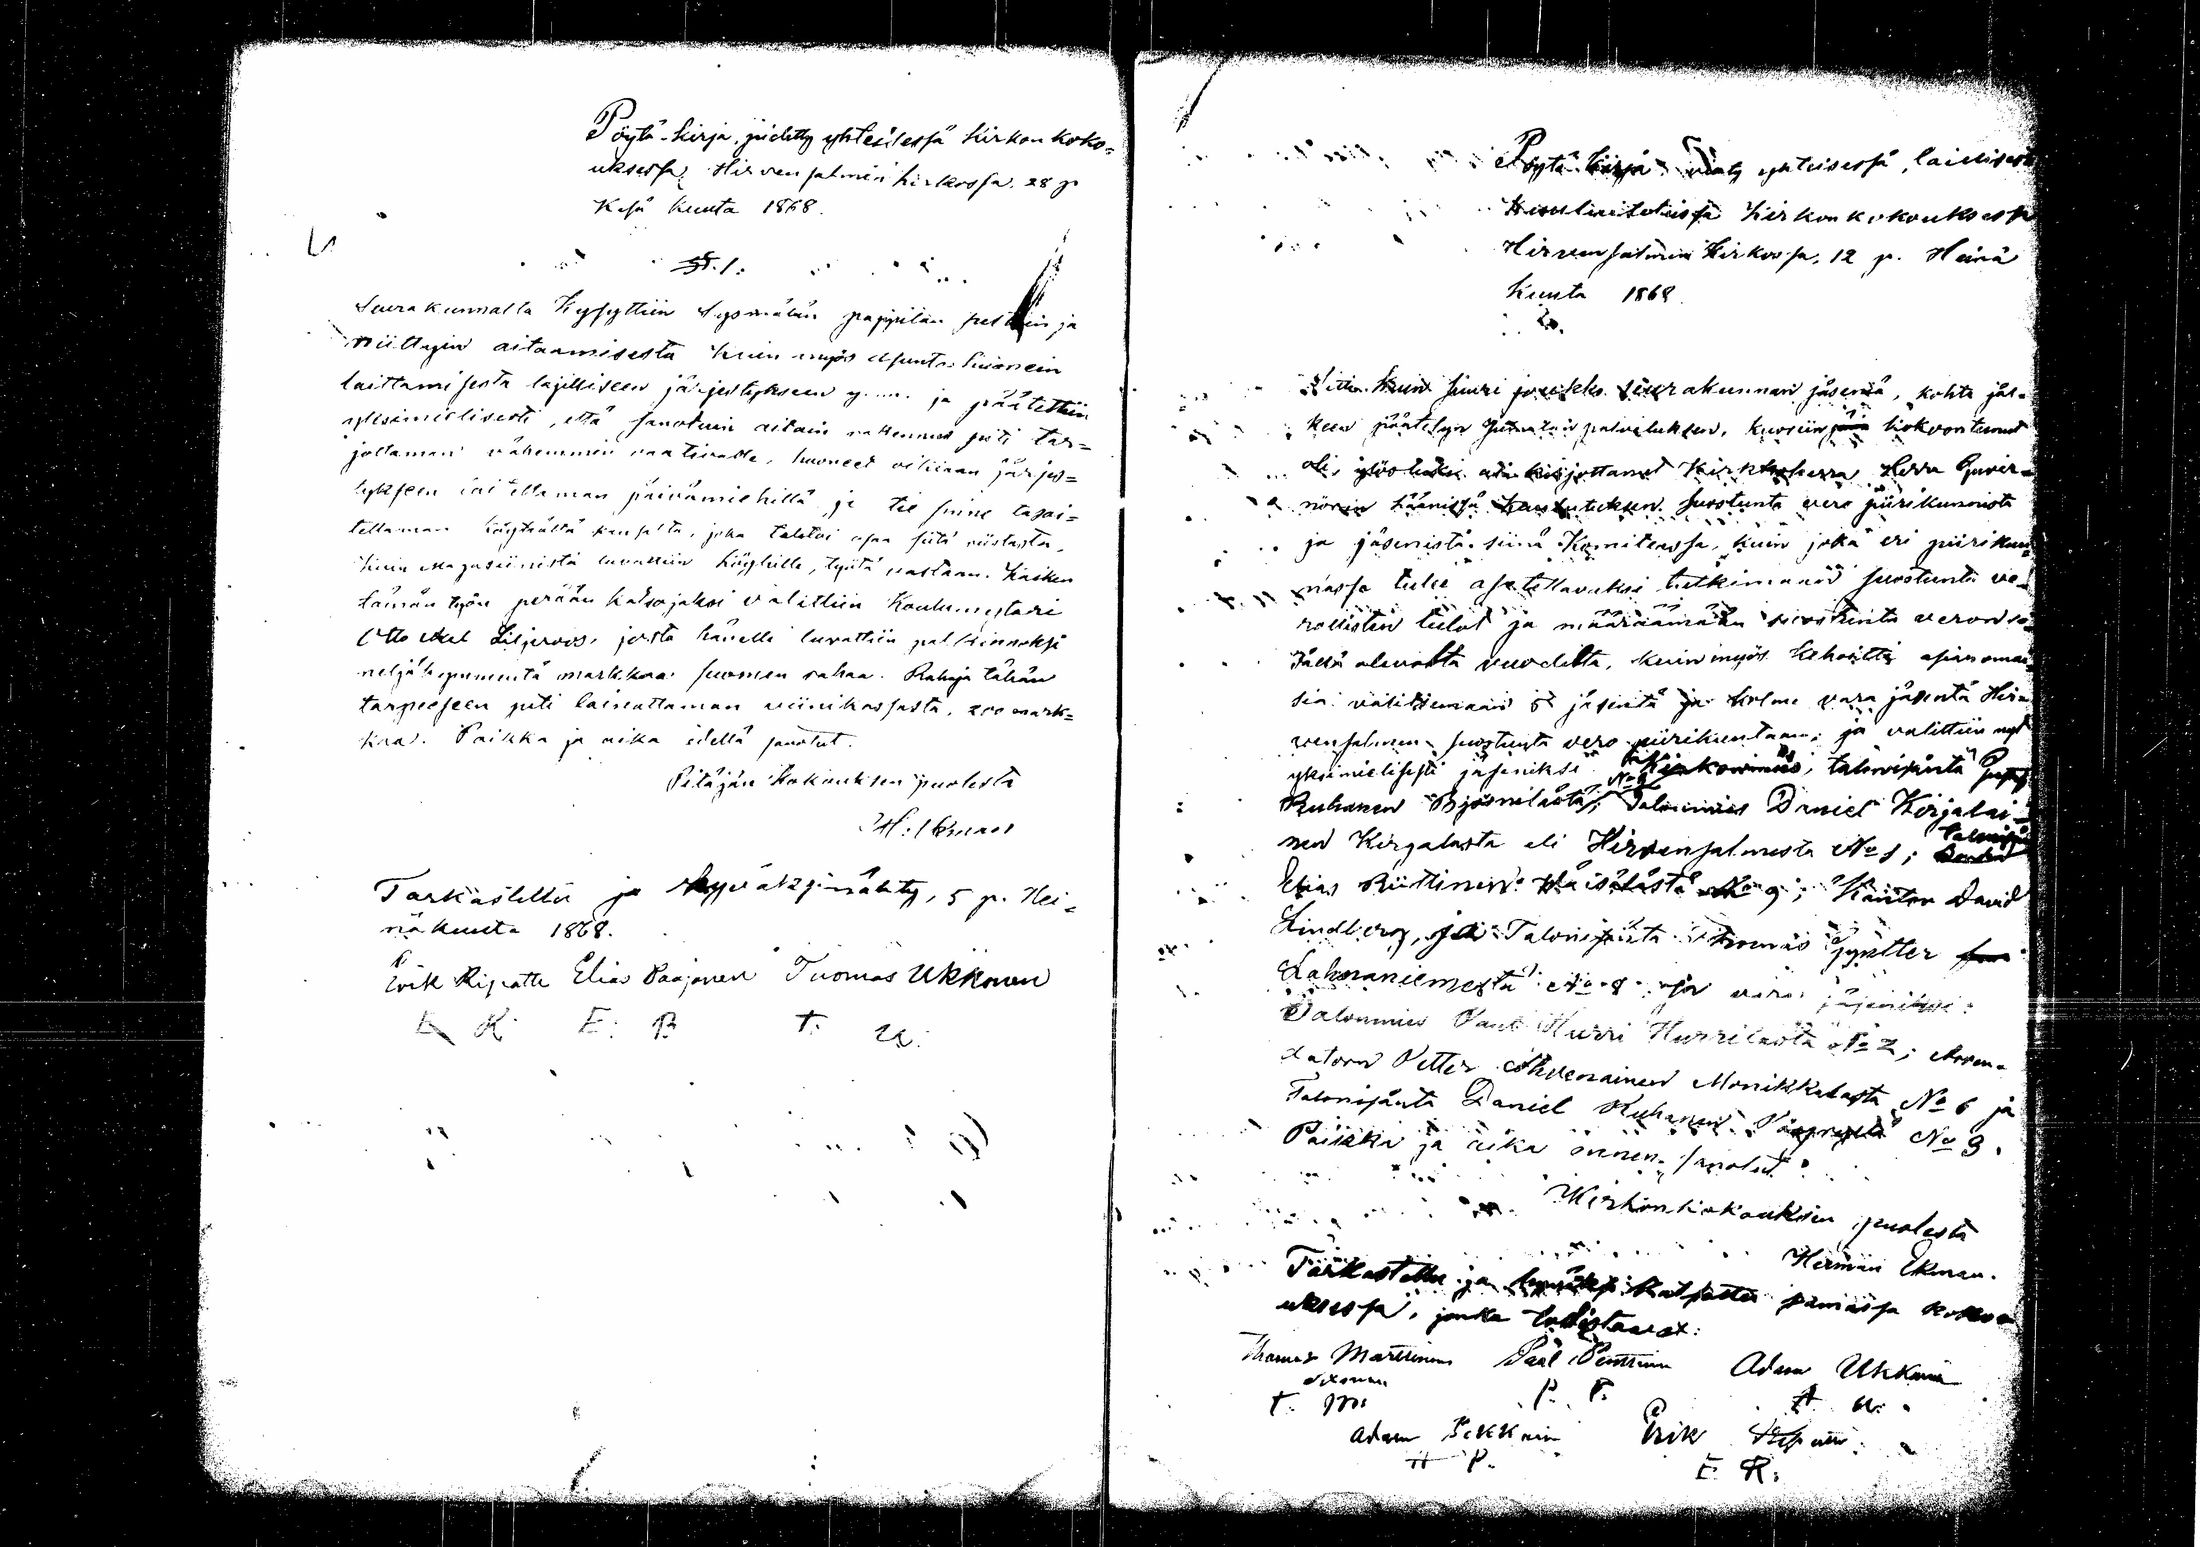 Pöytä-kirja, pidetty yhteisessä kirkon koko-
uksessa, Hirvensalmin kirkossa. 28 p
Kesä kuuta 1868.
§. 1:
Seurakunnalta kysyttiin Sysmälän pappilan peltoin ja
niittyin aitaamisesta kuin myös asunto huonein
laittamisesta lajilliseen järjestykseen y.m. ja päätettiin
yksimielisesti, että sanotuin aitain rakennus piti tar-
jottaman vähemmin vaativalle, huoneet oitiaan järjes-
tykseen laitettaman päivämiehillä ja tie sinne tasoi-
tettaman köyhältä kansalta, joka tahtoi apua siitä
kuin Magasiinista luvattiin köyhille, työtä vastaan. Kaiken
tämän työn perään katsojaksi valittiin Koulumestari
Otto Liljeroos, josta hänelle luvattiin palkinnoksi
neljäkymmentä markkaa Suomen rahaa. Rahaja tähän
tarpeeseen piti lainattaman viinikassasta, 200 mark-
kaa. Paikka ja aika edellä sanotut.
Pitäjän kokouksen puolesta
H: Ekman
Tarkastettu ja hyväksynähty, 5 p. Hei-
näkuuta 1868.
Erik Ripatti Elias Paajanen Tuomas Ukkonen
E. R. E: P. T. U.
Pöytä-kirja yhteisessä, laillisesti
kuulutetussa kirkon kokouksessa
Hirvensalmin kirkossa, 12 p. Heinä
kuuta 1868.
Sitten kuin suuri joukko seurakunnan jäseniä, kohta jäl-
keen päätetyn Jumalan palveluksen, kuoriin kokoontunut
oli, Kirkkoherra Herra Guver-
nörin läänissä kuulutuksen suostunta vero piirikunnista
ja jäsenistä siinä Komiteassa, kuin joka eri piirikun-
nassa tulee asetettavaksi tutkimaan suostunta ve-
rollisten tulot ja määräämään suostunta veron
tällä olevalta vuodelta, kuin myös kehoitti asianomai-
sia valitsemaan 5 jäsentä ja kolme vara jäsentä Hir-
vensalmen suostunta vero piirikuntaan; ja valittiin nyt
yksimielisesti jäseniksi talonisäntä
Ruhanen Björnilästä No 2; Talonmies Daniel Kirjalai-
nen Kirjalasta eli Hirvensalmesta No 1; talonisäntä
Elias Riittinen Väisälästä No 9; Kanttor David
Lindberg, ja Talonisäntä Thomas
Lahnaniemestä No 8 ja vara jäseniksi:
Talonmies Paul Hurri Hurrilasta No 2; Arren-
datorn Petter Ahvenainen Monikkalasta No 6 ja
Talonisäntä Daniel Ruhanen No 3.
Paikka ja aika ennen sanotut.
Kirkonkokouksen puolesta
Herman Ekman.
Tarkastettu ja hyväksi katsottu samassa koko-
uksessa, jonka todistaavat:
Thomas Marttinen Paul Penttinen Adam Ukkonen
T. M. P. P. A. U.
Adam Pekkanen Erik Ripatti
A P. E. R: